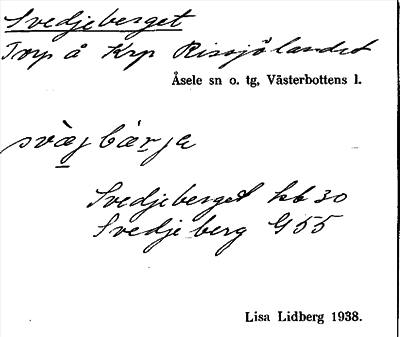 Svedjeberget
Torp å Krp Rissjölandet
Åsele sn o. tg, Västerbottens l.
svæ̀jbæ̀rje
Svedjeberget hb 30
Svedjeberg G 55
Lisa Lidberg 1938.